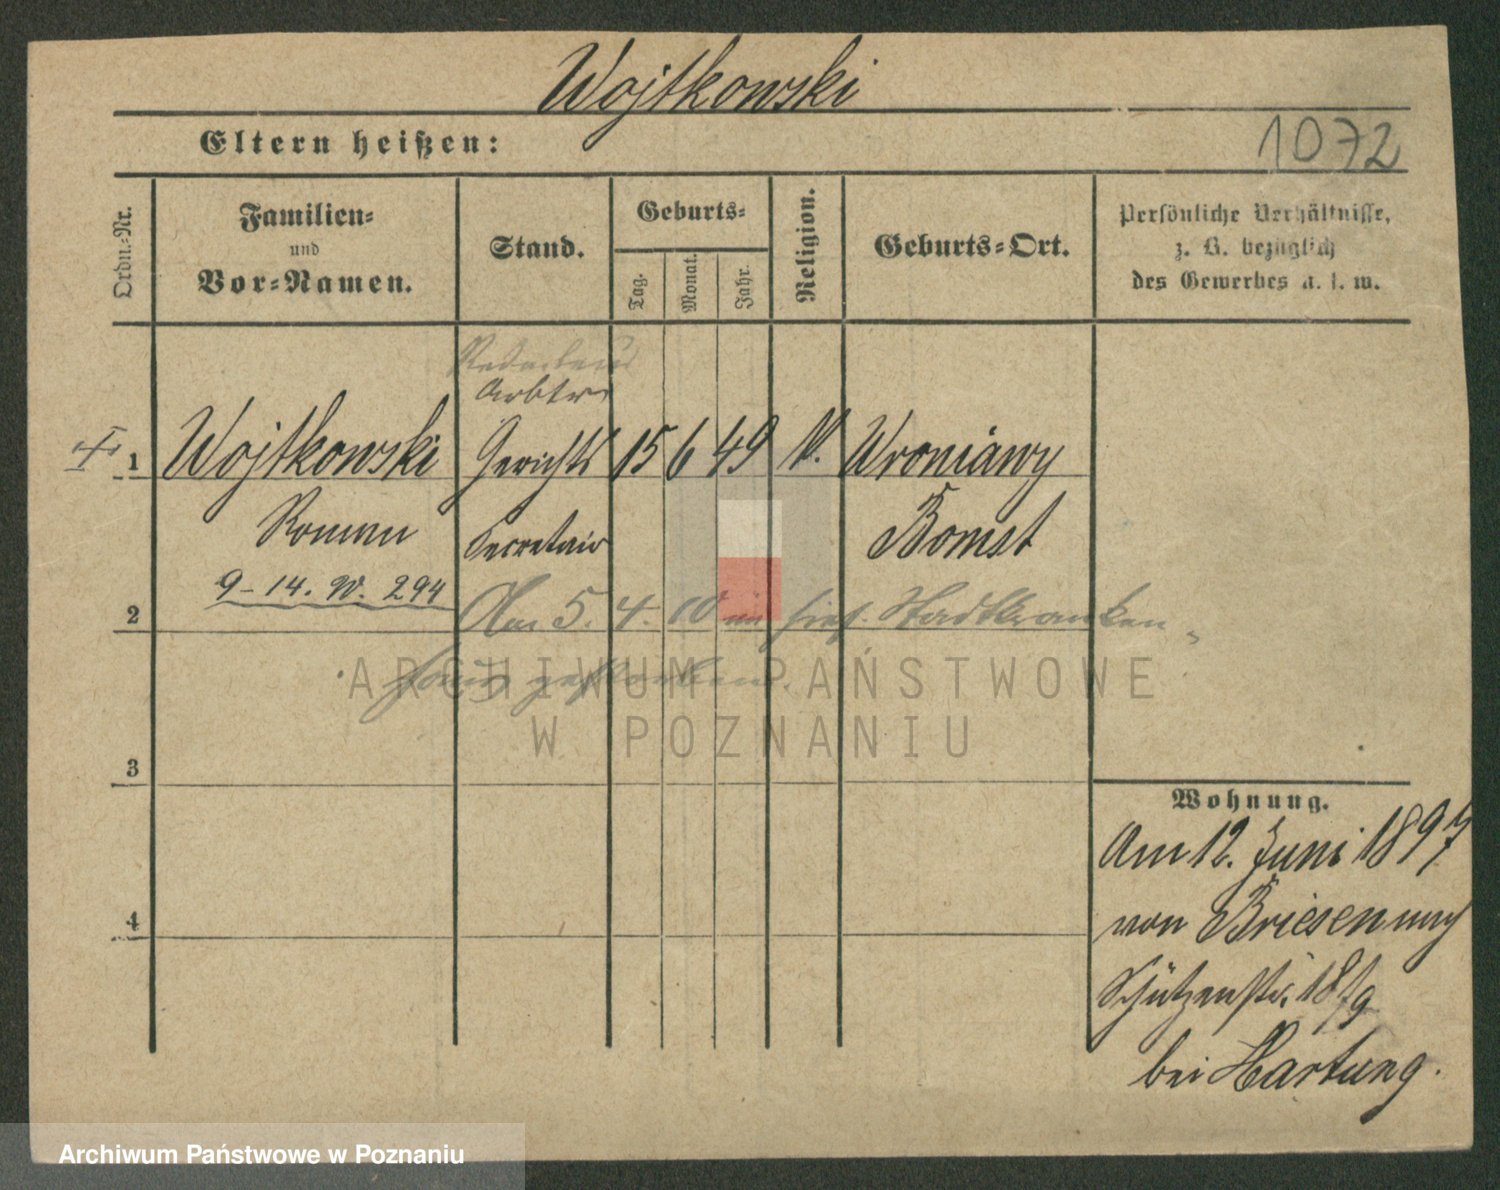 Wojtkowski
Eltern heißen:
1072
Ordn.-Nr.
Familien-
und
Vor-Namen.
Stand.
Geburts-
Tag.
Monat.
Jahr.
Religion.
Geburts-Ort.
Persönliche Verhältnisse,
z. B. bezüglich
des Gewerbes u. s. w.
Arbtr
1 Wojtkowski Gerichts 15 6 49 k. Wroniawy
Roman Secretair Bomst
9-14. W. 294
2 Am 5. 4. 10 im hies. Stadtkranken-
haus gestorben.
ARCHIWUM PAŃSTWOWE
W POZNANIU
3
Wohnung.
Am 12. Juni 1897
von Briesen nach
4
Schützenstr. 18/19
bei Hartung.
Archiwum Państwowe w Poznaniu